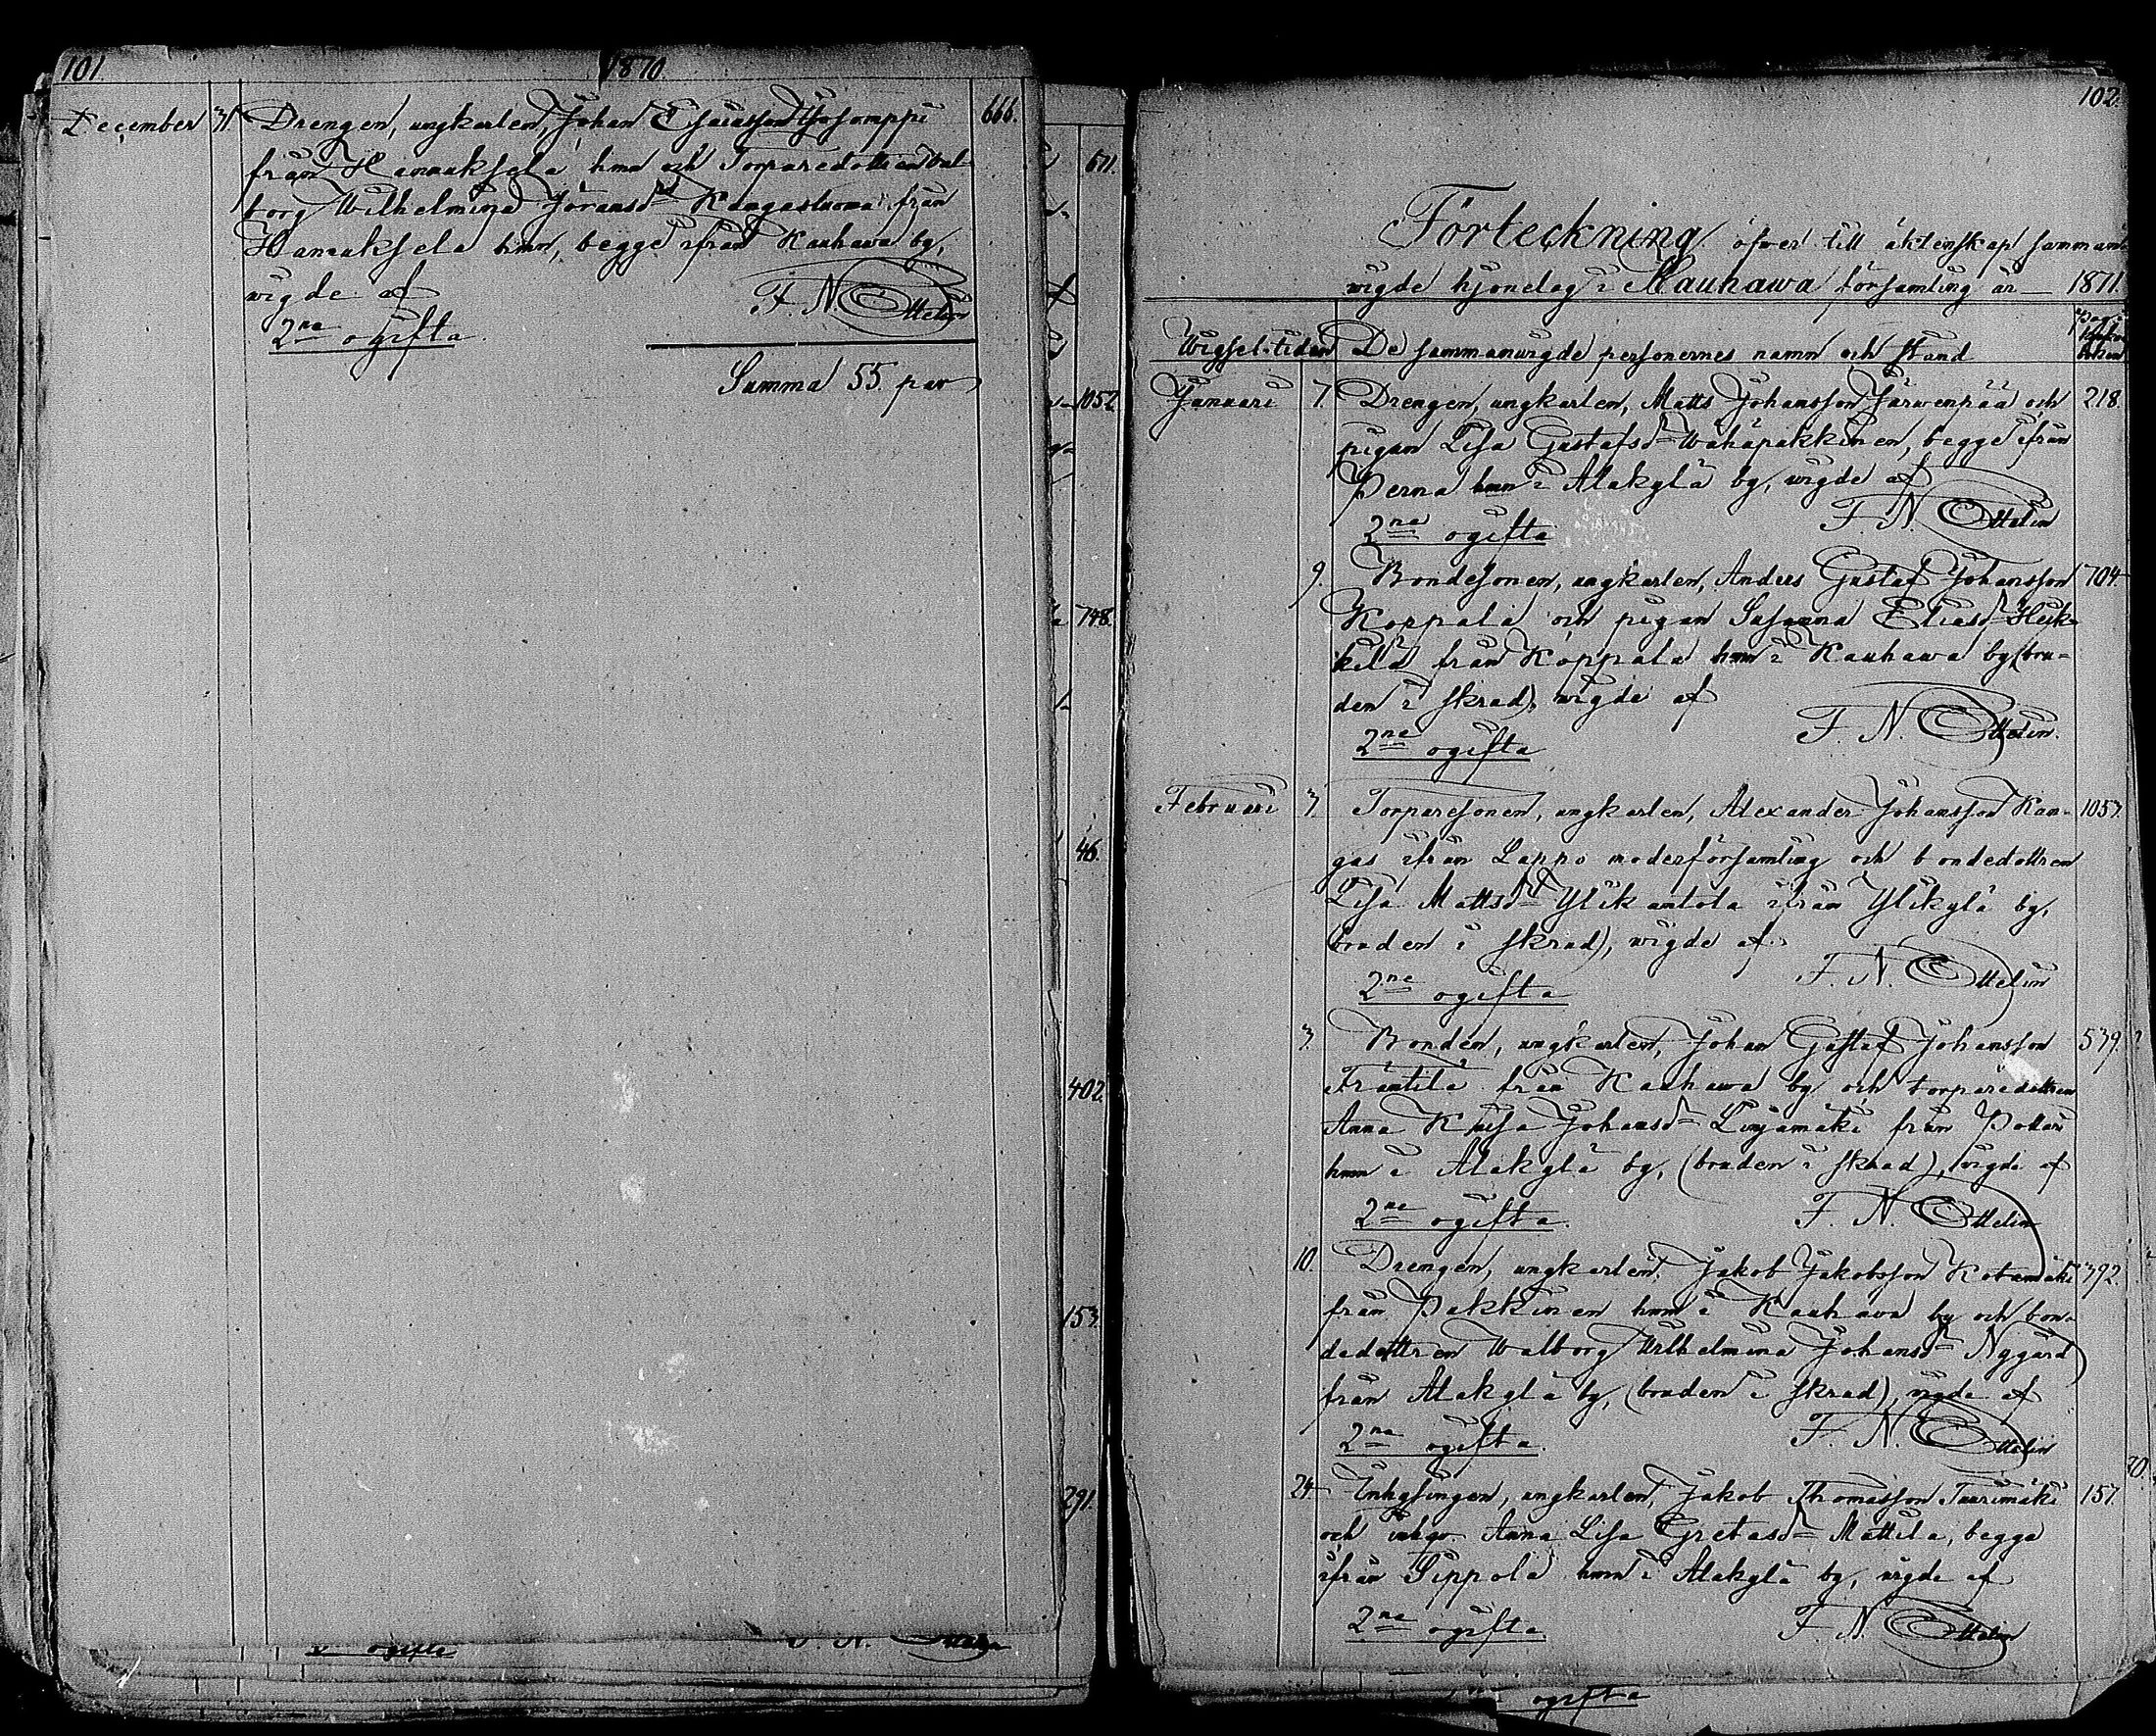 101.
1870
December 31. Drengen, ungkarlen, Johan Esaiasson 666.
från Hannuksela hmn och Torparedottren Wal-
borg Wilhelmina Joransd Kangasluoma från
Hannuksela hmn, begge ifrån Kauhawa by,
wigde af F. N. Ottelin
2ne ogifta.
Summa 55. par
671.
1052
748.
46.
402.
153.
291.
102.
Förteckning öfver till äktenskap samman-
wigde hjonelag i Kauhawa församling år 1871.
Wigsel-tiden De sammanwigde personernes namn och stånd
Januari 7. Drengen, ungkarlen, Matts Johansson Järwenpää och 218.
pigan Lisa Gustafsd Wähäpakkinen, begge ifrån
Perna hmn i Alakylä by, wigde af
2ne ogifta F. N. Ottelin
9. Bondesonen, ungkarlen, Anders Gustaf Johansson 704.
Koppala och pigan Susanna Eliasd Heik-
kilä från Koppala hmn i Kauhawa by, (bru-
den i skrud), wigde af
2ne ogifta F. N. Ottelin.
Februari 3. Torparesonen, ungkarlen, Alexander Johansson Kan- 1053.
gas ifrån Lappo moderförsamling och bondedottren
Lisa Mattsd Ylikantola ifrån Ylikylä by,
bruden i skrud), wigde af
2ne ogifta F. N. Ottelin
3. Bonden, ungkarlen, Johan Gustaf Johansson 539.
Fräntilä från Kauhawa by och torparedottren
Anna Kajsa Johansd Linjamäki från Potari
hmn i Alakylä by, (bruden i skrud), wigde af
2ne ogifta. F. N. Ottelin
10. Drengen, ungkarlen, Jakob Jakobsson Kotamäki 392.
från Pakkinen hmn i Kauhawa by och bon-
dedottren Walborg Wilhelmina Johansd Nygård
från Alakylä by, (bruden i skrud), wigde af
2ne ogifta. F. N. Ottelin
24. Inhysingen, ungkarlen, Jakob Thomasson Tuurimäki 157.
och inhqv. Anna Lisa Gretasd Mattila, begge
ifrån Sippola hmn i Alakylä by, wigde af
2ne ogifta F. N. Ottelin
ogifta
ogifta